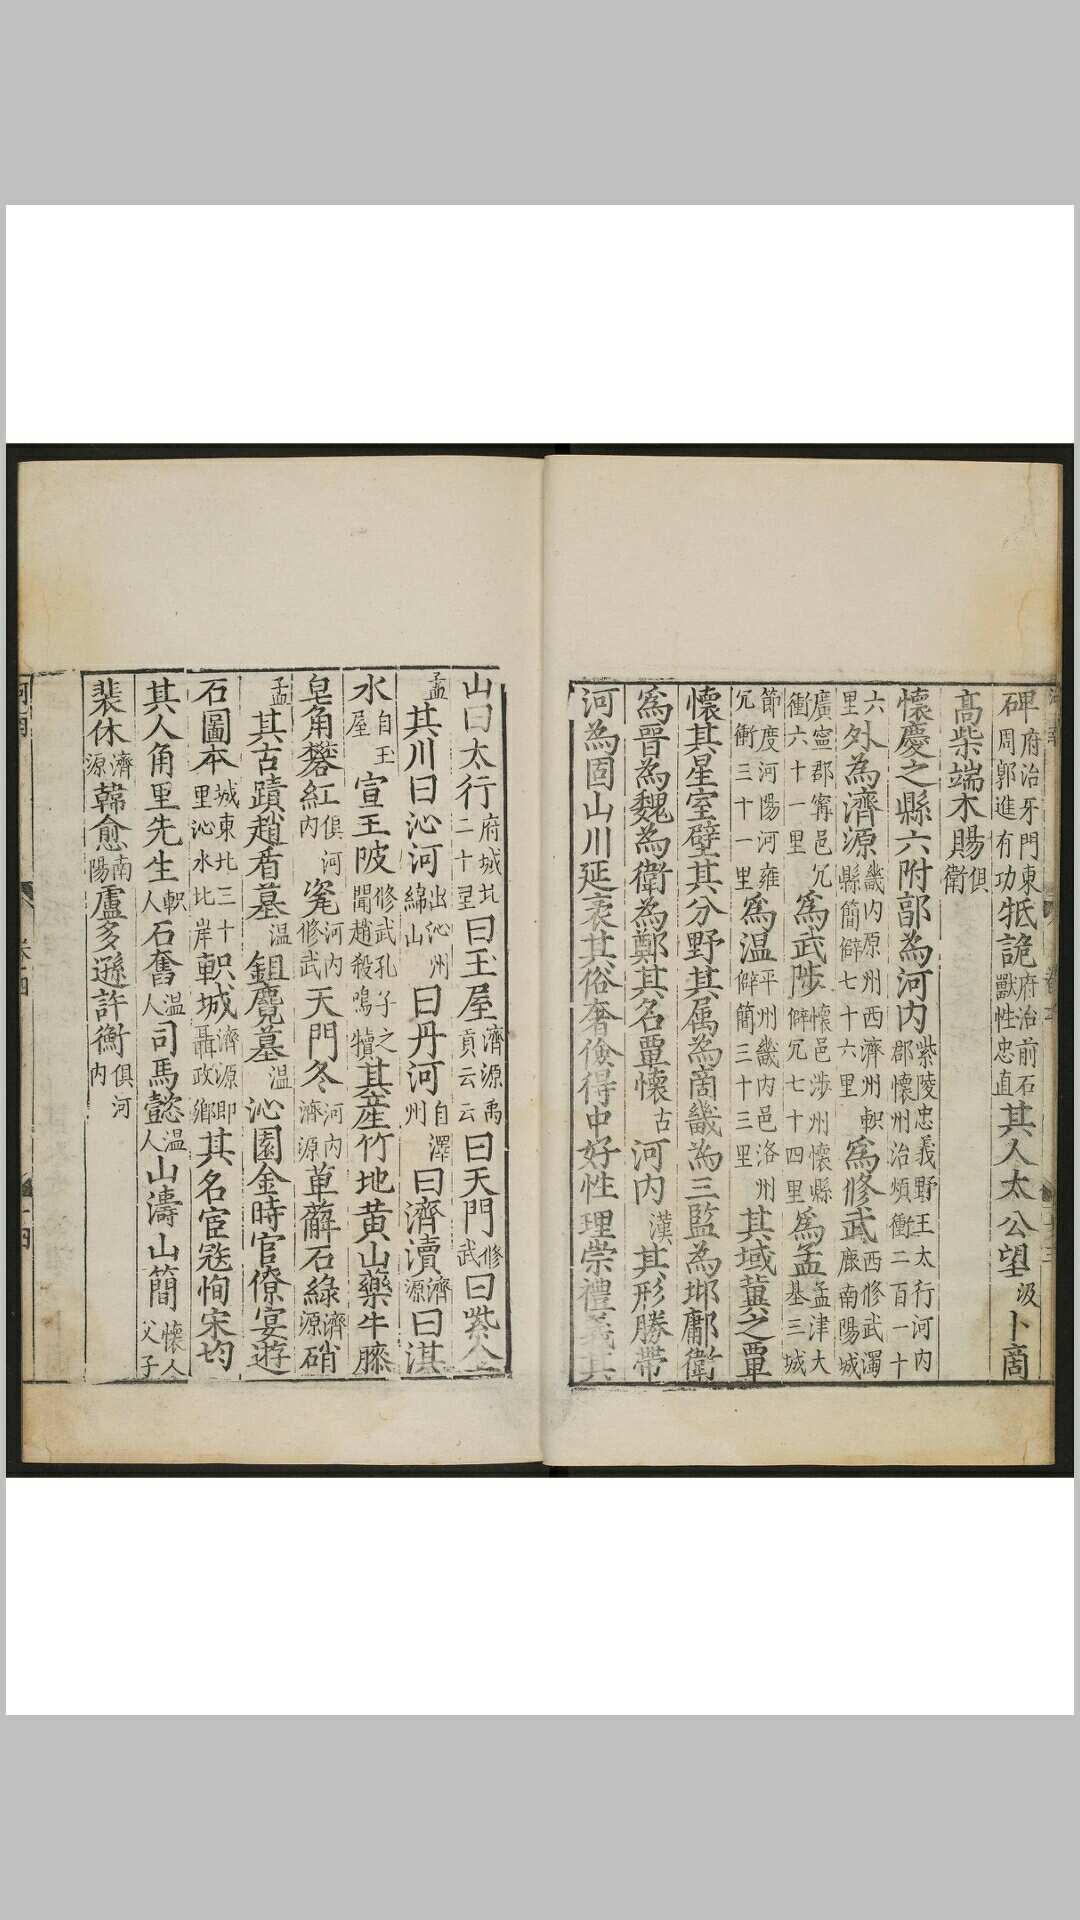 碑府治牙門東周郭進有功牴詭府治前石獸性忠直其人太公望汲卜商
高柴端木賜俱衛
懷慶之縣六附郭為河内紫陵忠義野王太行河内郡懷州治煩衝二百一十
六里外為濟源畿内原州西濟州軹縣簡僻七十六里為修武西修武濁鹿南陽城
廣寧郡甯邑冗衝六十一里為武陟懷邑涉州懷縣僻冗七十四里為孟孟津大基三城
節度河陽河雍冗衝三十一里為温平州畿内邑洛州僻簡三十三里其域冀之覃
懷其星室壁其分野其属為啇畿為三監為邶鄘衛
為晉為魏為衛為鄭其名覃懷古河内漢其形勝帶
河為固山川延袤其俗奢儉得中好性理崇禮義其
山曰太行府城北二十里曰王屋濟源禹貢云云曰天門修武曰㗪人
孟其川曰沁河出沁州綿山曰丹河自澤州曰濟瀆濟源曰淇
水自王屋宣王陂修武孔子之聞趙殺鳴犢其產竹地黄山藥牛膝
皂角礬紅俱河内瓷河内修武天門冬河内濟源萆薢石綠濟源硝
孟其古蹟趙盾墓温鉏麑墓温沁園金時官僚宴遊
石圖本城東北三十里沁水北岸軹城濟源即聶政鄉其名宦寇恂宋均
其人角里先生軹人石奮温人司馬懿温人山濤山簡懷人父子
裴休濟源韓愈南陽盧多遜許衡俱河内